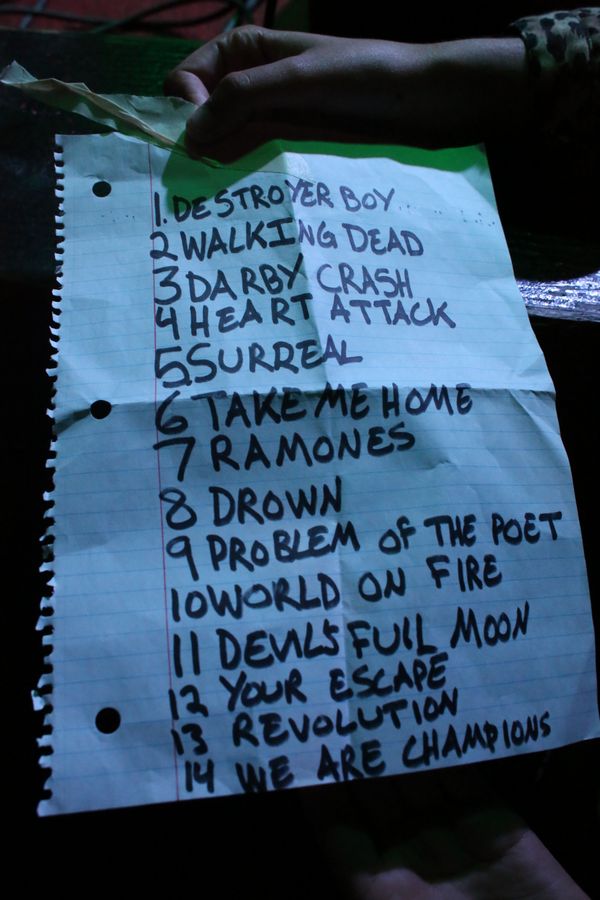 1. DESTROYER BOY
2 WALKING DEAD
3 DARBY CRASH
4 HEART ATTACK
5 SURREAL
6 TAKE ME HOME
7 RAMONES
8 DROWN
9 PROBLEM OF THE POET
10 WORLD ON FIRE
11 DEVIL'S FULL MOON
12 YOUR ESCAPE
13 REVOLUTION
14 WE ARE CHAMPIONS